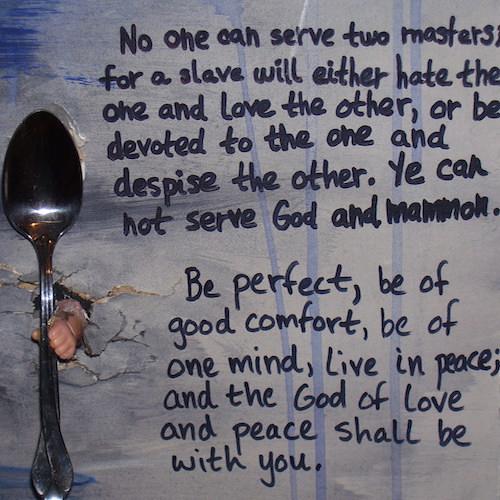 No one can serve two masters;
for a slave will either hate the
one and love the other, or be
devoted to the one and
despise the other. Ye can
not serve God and mammon.
Be perfect, be of
good comfort, be of
one mind, live in peace;
and the God of love
and peace shall be
with you.